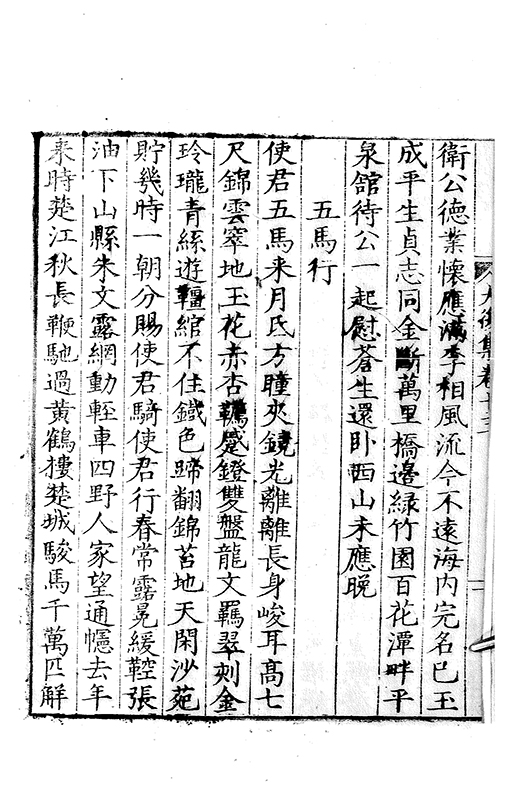 衛公德業懷應滿李相風流今不遠海內完名已玉
成平生貞志同金斷萬里橋邊綠竹園百花潭畔平
泉館待公一起慰蒼生還臥西山未應晚
五馬行
使君五馬来月氏方瞳夾鏡光離離長身峻耳高七
尺錦雲窣地玉花赤杏韉蹙鐙雙盤龍文羈翠刺金
玲瓏青絲遊韁綰不住鐵色蹄翻錦苔地天閑沙苑
貯幾時一朝分賜使君騎使君行春常露冕緩鞚張
油下山縣朱文露網動輕車四野人家望通幰去年
来時楚江秋長鞭馳過黃鶴樓楚城駿馬千萬匹解